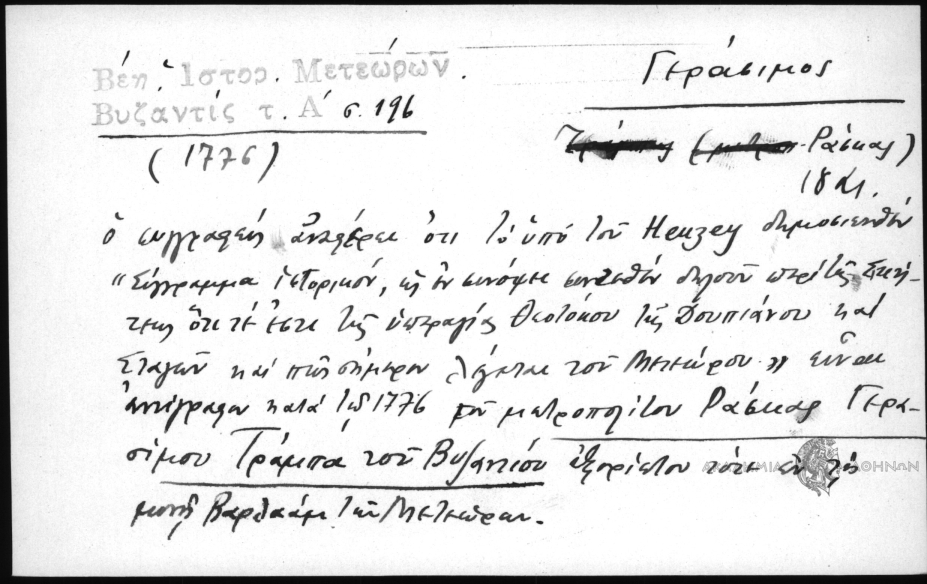 Βέη. Ιστορ. Μετεώρων.
Βυζαντίς τ. Α´ σ. 196
(1776)
Γεράσιμος
Ράσκας)
18 αι.
ὁ συγγραφεύς ἀναφέρει ὅτι τὸ ὑπό τοῦ Heuzey δημοσιευθέν
"Σύγγραμμα ἱστορικόν, ὡς ἐν συνόψει συντεθέν δηλοῦν περί τῆς Σκή-
τεως ὅτι τέ ἐστι τῆς ὑπεραγίας Θεοτόκου τῆς Δουπιάνου καί
Σταγῶν καί πῶς σήμερον λέγεται τοῦ Μετεώρου" εἶναι
ἀντίγραφον κατά τό 1776 τοῦ μητροπολίτου Ράσκας Γερα-
σίμου Τράμπα τοῦ Βυζαντίου ἐξορίστου τότε ἐν τῇ
μονῇ Βαρλαάμ τῶν Μετεώρων.
ΑΚΑΔΗΜΙΑ ΑΘΗΝΩΝ